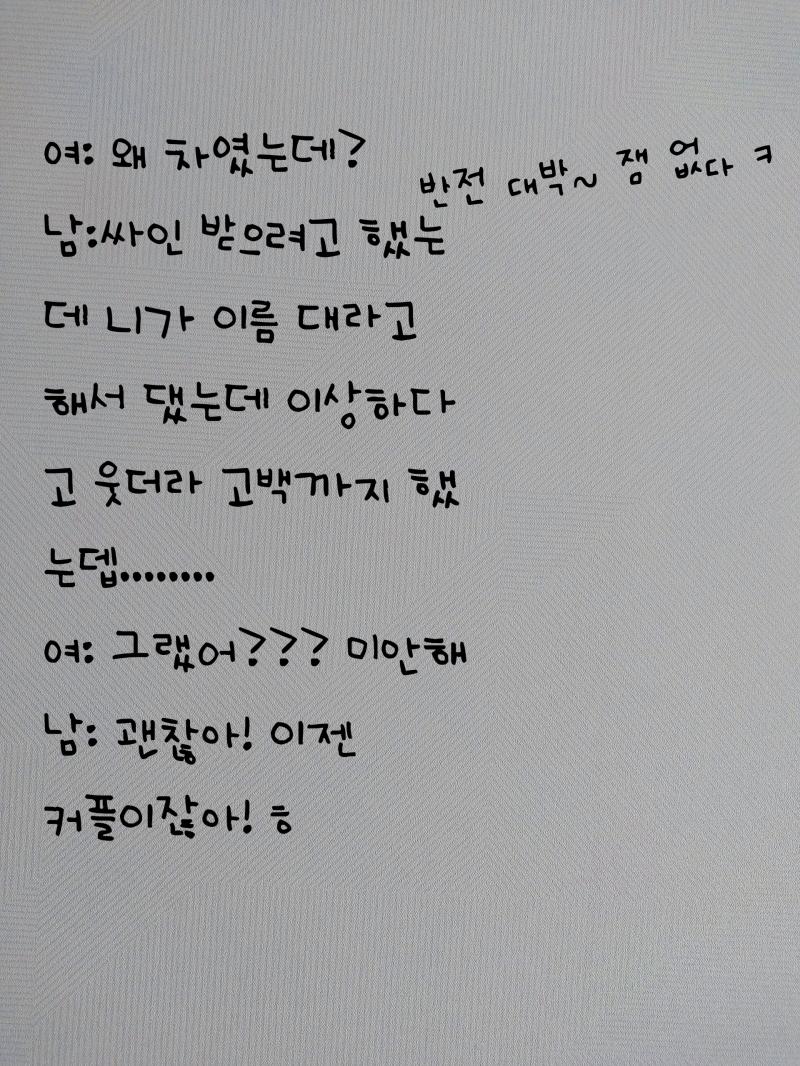 여: 왜 차였는데?
반전 대박~ 잼 없다 ㅋ
남:싸인 받으려고 했는
데 니가 이름 대라고
해서 댔는데 이상하다
고 웃더라 고백까지 했
는뎁........
여: 그랬어??? 미안해
남: 괜찮아! 이젠
커플이잖아! ㅎ